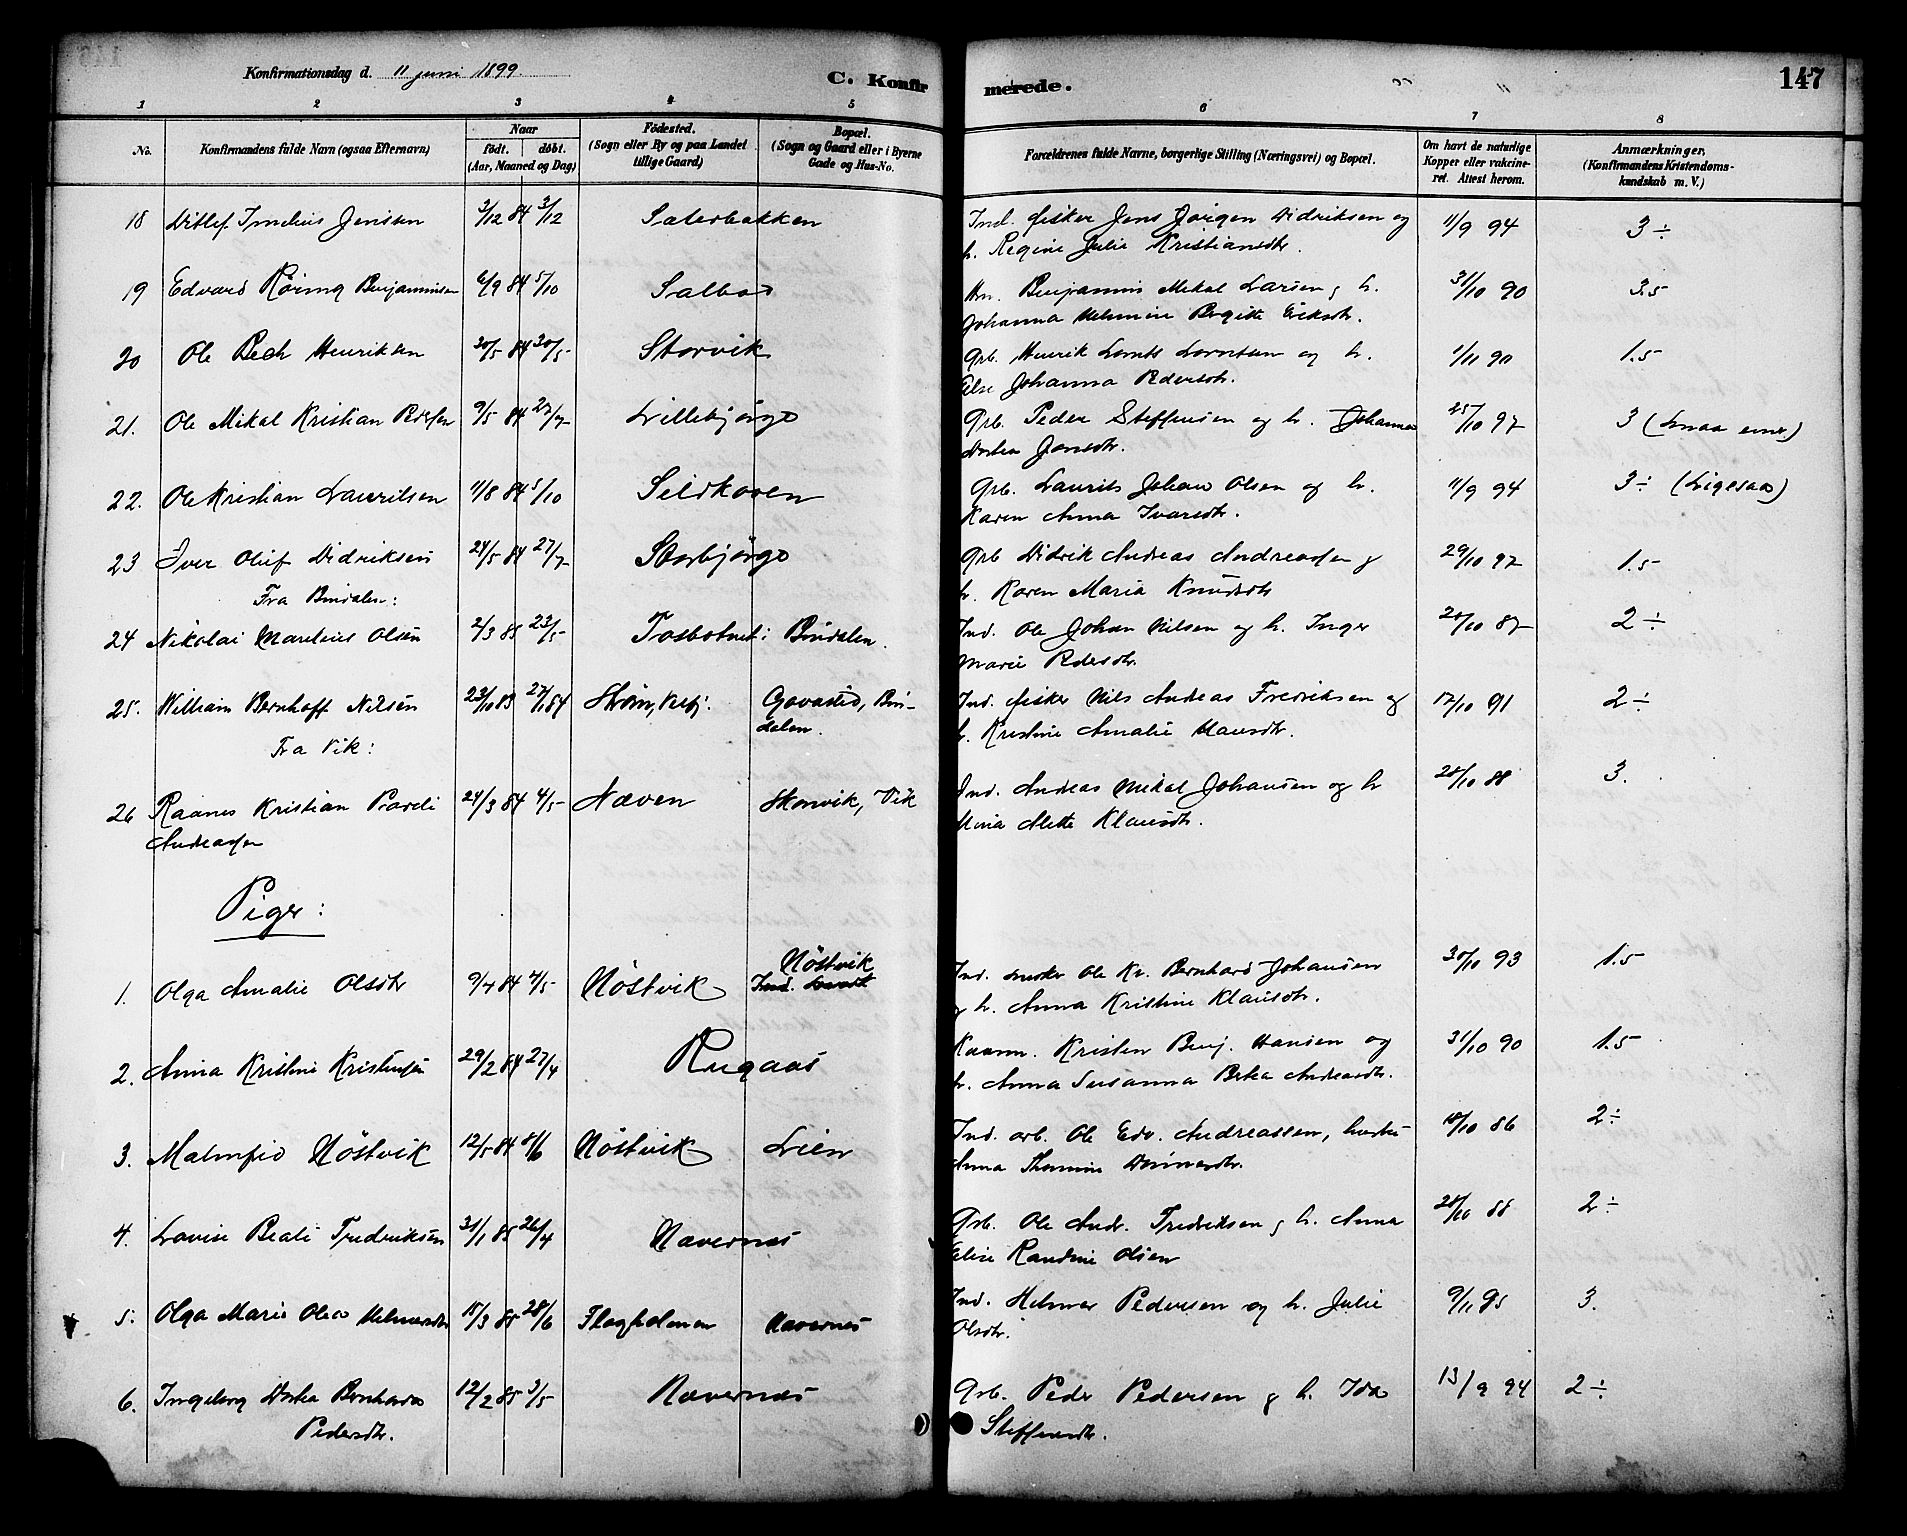 Konfirmationsdag d. 11 juni 1899. C. Konfirmerede. 147
1 2 3 4 5 6 7 8
No. Konfirmandens fulde Navn (ogsaa Efternavn) Naar født. døbt. (Aar, Maaned og Dag) Fødested. (Sogn eller By og paa Landet tillige Gaard) Bopæl. (Sogn og Gaard eller i Byerne Gade og Hus-No. Forældrenes fulde Navne, borgerlige Stilling (Næringsvei) og Bopæl. Om havt de naturlige Kopper eller vakcineret. Attest herom. Anmærkninger, (Konfirmandens Kristendomskundskab m. V.)
18 Ditlef Jensen 3/12 84 3/12 Saterbakken Ind. fisker Jens Jørgen Didriksen og
h. Regine Julie Kristiansdtr. 11/9 94 3÷
19 Edvard Røring Benjaminsen 6/9 84 5/10 Benjamin Mikal Larsen, h.
Johanna Birgitte Eriksdtr. 31/10 90 3.5
20 Ole Henriksen 30/5 84 20/5 Storvik Grb. Henrik og h.
Else Johanna Pedersdtr. 1/11 90 1.5
21. Ole Mikal Kristian 9/5 84 Lillebjørgo Grb. Peder Steffensen og h. Johanna
Jonsdtr. 25/10 97 3
22. Ole Kristian Lauritsen 11/8 84 5/10 Sildkoven Grb. Laurits Johan Olsen og h.
Karen Anna Ivarsdtr. 11/9 94 3÷ (Ligesaa)
23 Iver Oluf Didriksen 24/5 84 27/7 Storbjørgo Grb Didrik Andreas Andreassen og
h. Karen Maria Knudsdtr 29/10 97 1.5
Fra Bindalen:
24 Nikolai Martinus Olsen 2/3 85 23/5 Tosbotnet i Bindalen. Ind. Ole Johan Nilsen og h. Inger
Marie Pedersdtr. 28/10 87 2÷
25. William Bernhoff Nilsen 23/10 83 27/1 84 Strøm, Velfj. Bindalen. Ind. fisker Nils Andreas Fredriksen og
h. Kristine Amalie Hansdtr. 17/10 91 2÷
Fra Vik:
26 Kristian Andreassen 24/3 84 4/5 Næven Vik Ind. Andreas Mikal Johansen og h
Alette Klausdtr. 28/10 88 3.
Piger:
1. Olga Amalie Olsdtr 9/4 84 4/5 Nøstvik Nøstvik Ind. Ole Kr. Bernhard Johansen
og h. Anna Kristine Klausdtr. 30/10 93 1.5
2. Anna Kristine Kristensen 29/2 84 27/4 Rugaas Kaarm. Kristen Benj. Hansen og
h. Anna Susanna Berta Andreasdtr. 31/10 90 1.5
3. Malmfrid Nøstvik 12/5 84 8/6 Nøstvik Lien Ind. arb. Ole Edv. Andreassen, hustru
Anna 18/10 86 2÷
4. Lovise Beate Fredriksen 31/1 85 26/4 Nævernes Grb. Ole Andr. Fredriksen, h. Anna
Elise Randine Olsen 28/10 88 2÷
5. Olga Marie Olea Helmersdtr 15/3 85 28/6 Flagholmen Nævernes Ind. Helmer Pedersen og h. Julie
Olsdtr. 9/11 95 3.
6. Ingeborg Bernharda
Pedersdtr. 12/2 85 3/5 Nævernes Grb. Peder Pedersen og h. Ida
Steffensdtr. 13/9 94 2÷